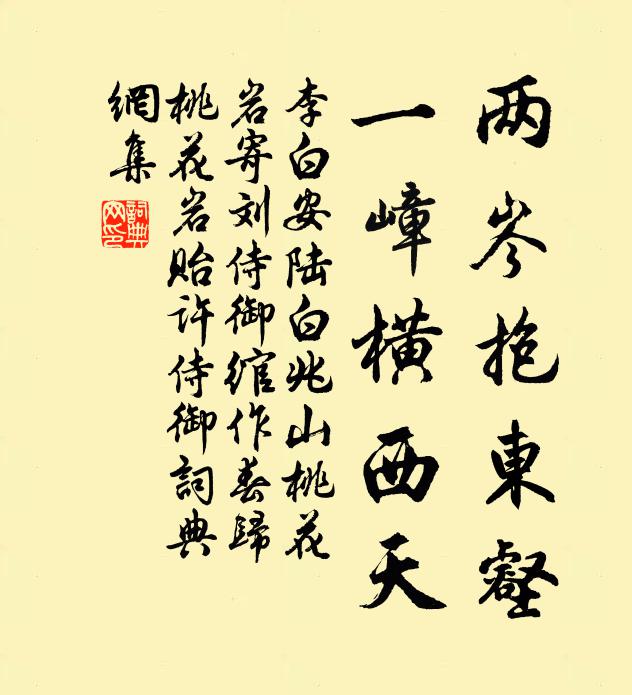 两岑抱東壑
一嶂橫西天
李白安陆白兆山桃花
岩寄刘侍御綰作春歸
桃花岩貽许侍御詞典
網集
詞典網印